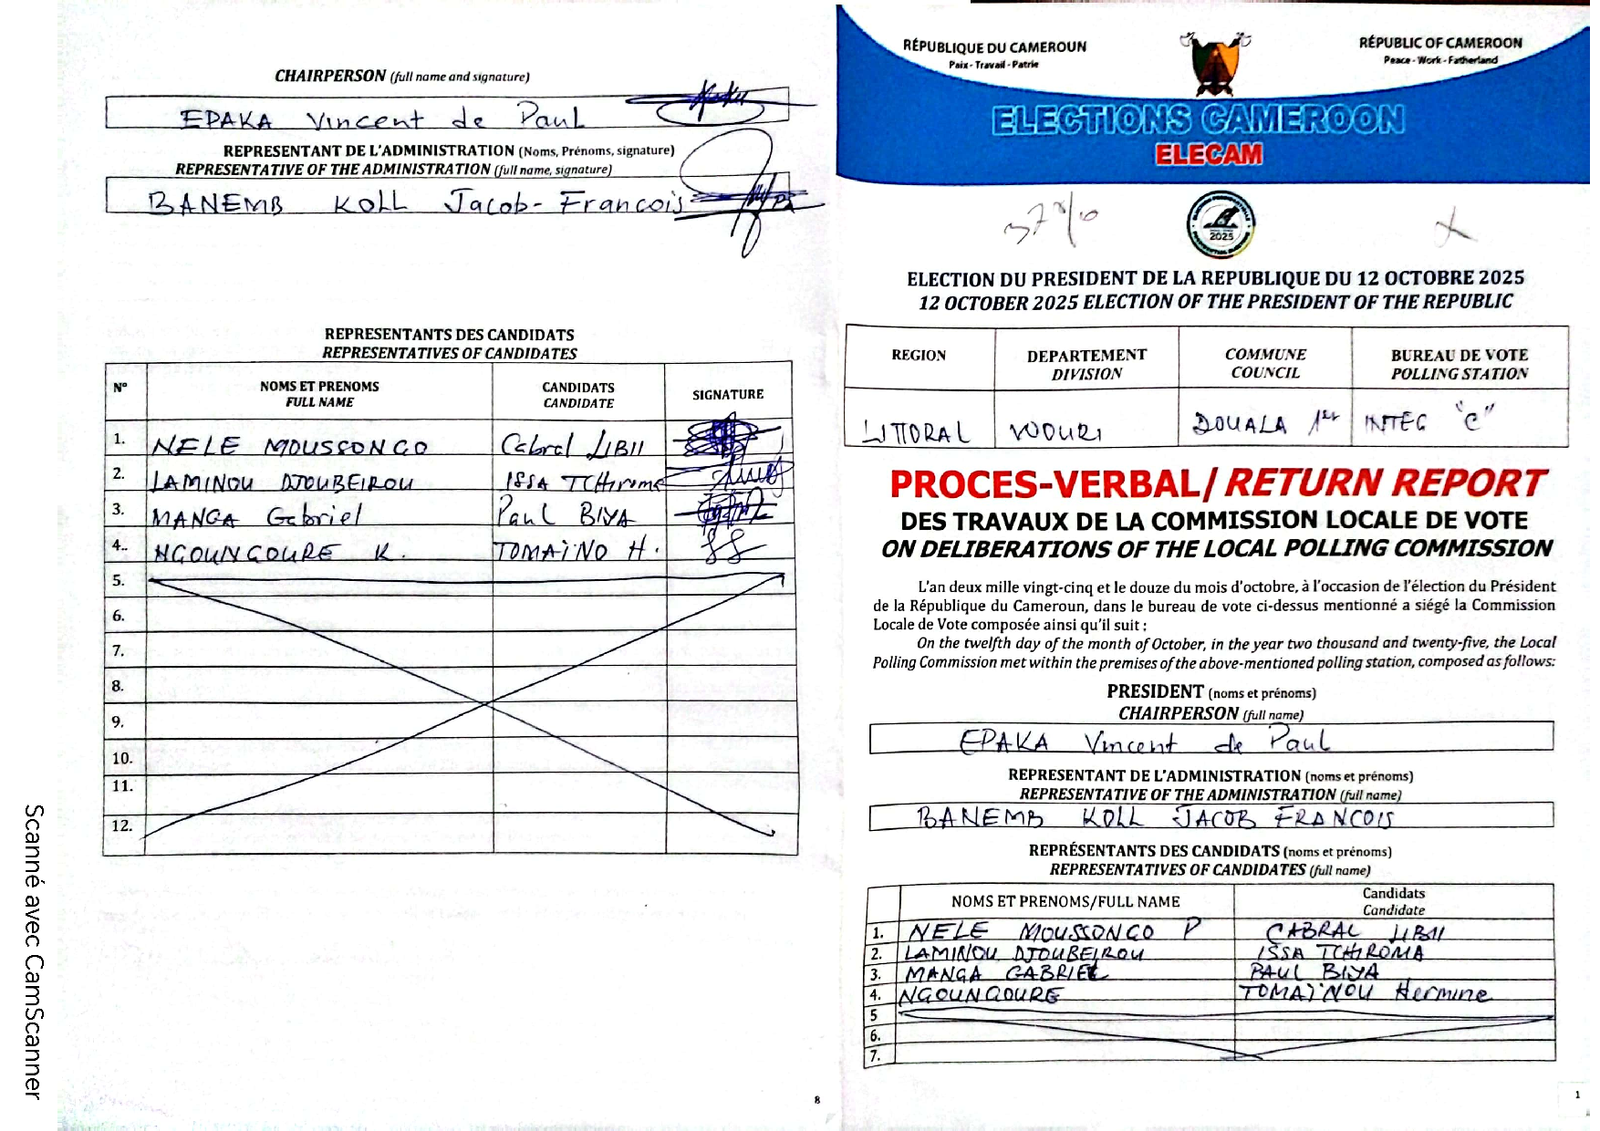 CHAIRPERSON (full name and signature)
EPAKA Vincent de Paul
REPRESENTANT DE L'ADMINISTRATION (Noms, Prénoms, signature)
REPRESENTATIVE OF THE ADMINISTRATION (full name, signature)
BANEMB KOLL Jacob-Francois
REPRESENTANTS DES CANDIDATS
REPRESENTATIVES OF CANDIDATES
N° NOMS ET PRENOMS FULL NAME CANDIDATS CANDIDATE SIGNATURE
1. NELE MOUSSONGO Cabral LIBII
2. LAMINOU DJOUBEIROU ISSA TCHIROMA
3. MANGA Gabriel Paul BIYA
4.. NGOUNGOURE K. TOMAÏNO H.
5.
6.
7.
8.
9.
10.
11.
12.
8
Scanné avec CamScanner
RÉPUBLIQUE DU CAMEROUN
Paix - Travail - Patrie
RÉPUBLIC OF CAMEROON
Peace - Work - Fatherland
ELECTIONS CAMEROON
ELECAM
37%
2025
ELECTION DU PRESIDENT DE LA REPUBLIQUE DU 12 OCTOBRE 2025
12 OCTOBER 2025 ELECTION OF THE PRESIDENT OF THE REPUBLIC
REGION DEPARTEMENT DIVISION COMMUNE COUNCIL BUREAU DE VOTE POLLING STATION
LITTORAL WOURI DOUALA 1er INTEG "C"
PROCES-VERBAL/ RETURN REPORT
DES TRAVAUX DE LA COMMISSION LOCALE DE VOTE
ON DELIBERATIONS OF THE LOCAL POLLING COMMISSION
L'an deux mille vingt-cinq et le douze du mois d'octobre, à l'occasion de l'élection du Président
de la République du Cameroun, dans le bureau de vote ci-dessus mentionné a siégé la Commission
Locale de Vote composée ainsi qu'il suit :
On the twelfth day of the month of October, in the year two thousand and twenty-five, the Local
Polling Commission met within the premises of the above-mentioned polling station, composed as follows:
PRESIDENT (noms et prénoms)
CHAIRPERSON (full name)
EPAKA Vincent de Paul
REPRESENTANT DE L'ADMINISTRATION (noms et prénoms)
REPRESENTATIVE OF THE ADMINISTRATION (full name)
BANEMB KOLL JACOB FRANCOIS
REPRÉSENTANTS DES CANDIDATS (noms et prénoms)
REPRESENTATIVES OF CANDIDATES (full name)
NOMS ET PRENOMS/FULL NAME Candidats Candidate
1. NELE MOUSSONGO P CABRAL LIBII
2. LAMINOU DJOUBEIROU ISSA TCHIROMA
3. MANGA GABRIEL PAUL BIYA
4. NGOUNGOURE TOMAÏNOU Hermine
5
6.
7.
1